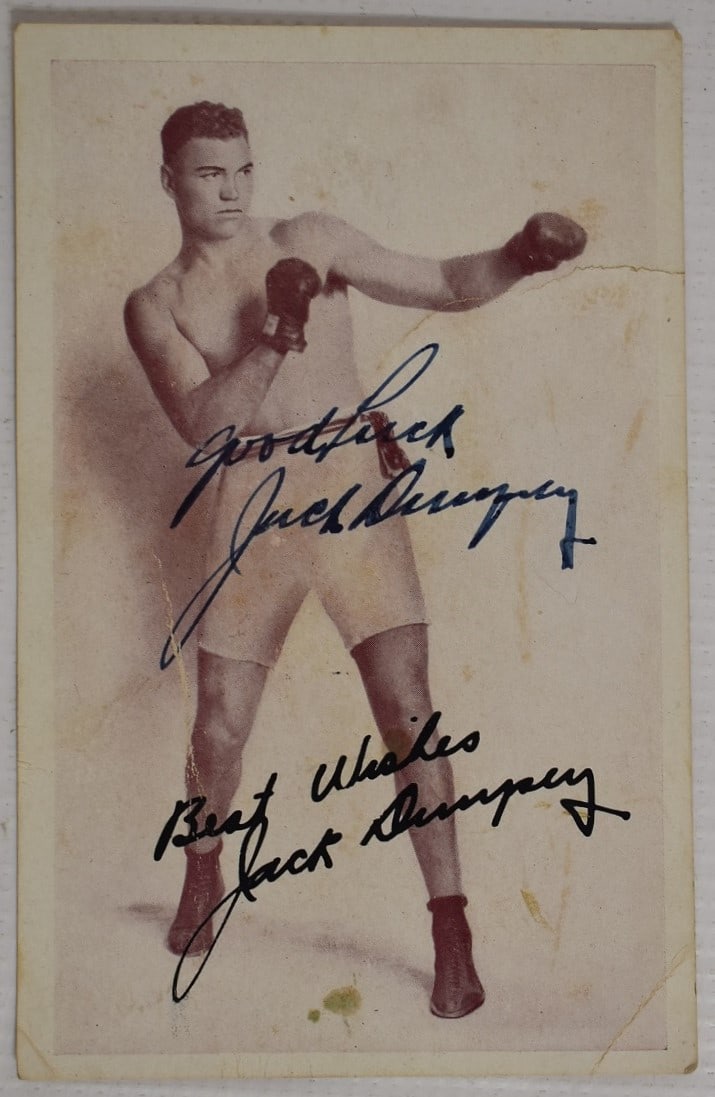 Good Luck
Jack Dempsey
Best Wishes
Jack Dempsey